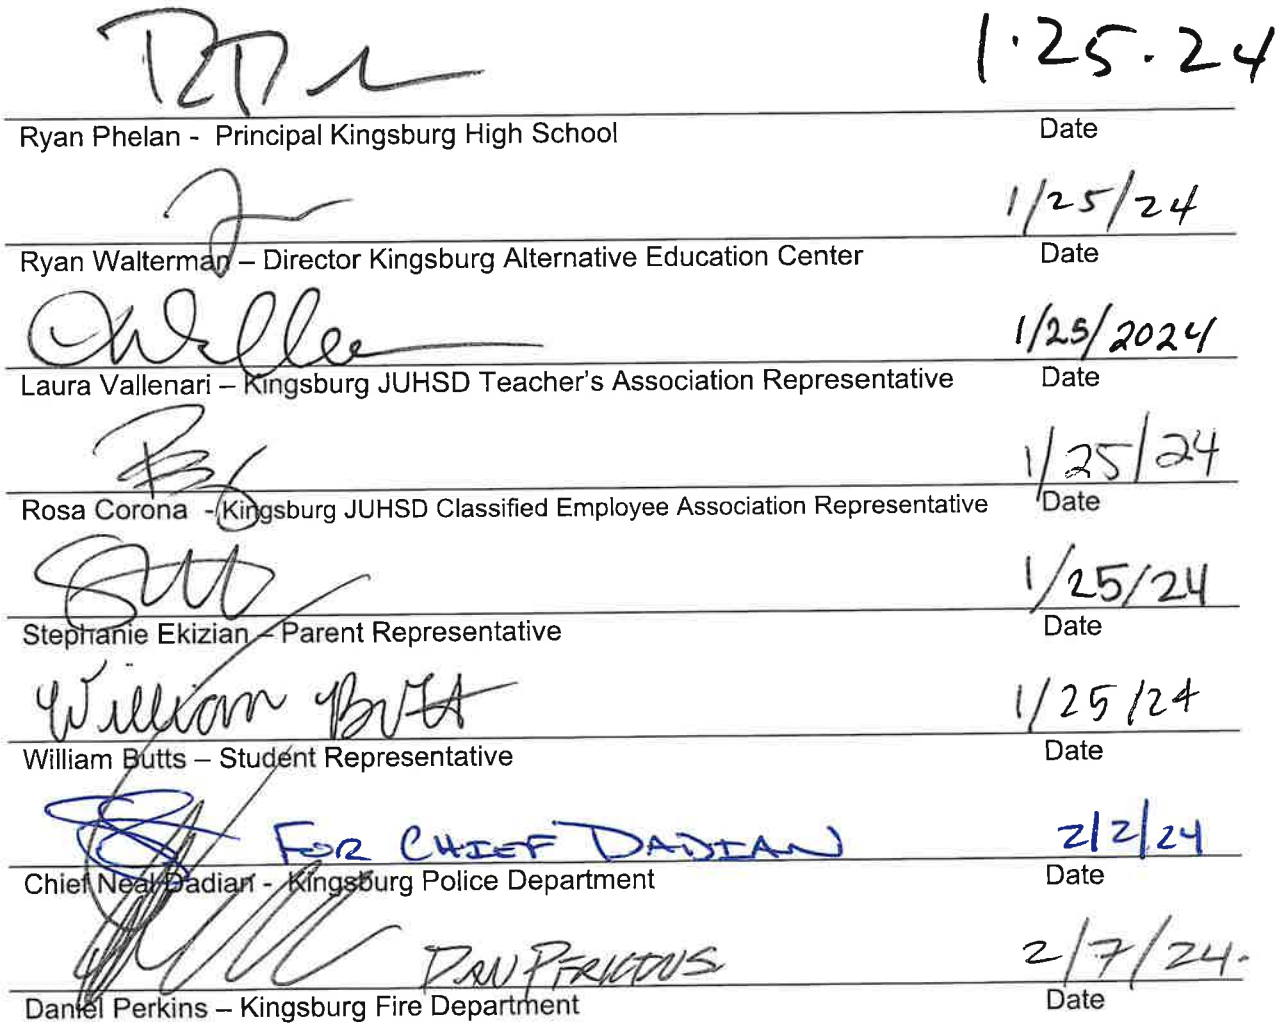 1.25.24
Ryan Phelan - Principal Kingsburg High School Date
1/25/24
Ryan Walterman – Director Kingsburg Alternative Education Center Date
1/25/2024
Laura Vallenari – Kingsburg JUHSD Teacher's Association Representative Date
1/25/24
Rosa Corona - Kingsburg JUHSD Classified Employee Association Representative Date
1/25/24
Stephanie Ekizian – Parent Representative Date
William Butts 1/25/24
William Butts – Student Representative Date
FOR CHIEF DADIAN 2/2/24
Chief Neal Dadian - Kingsburg Police Department Date
DAN PERKINS 2/7/24.
Daniel Perkins – Kingsburg Fire Department Date